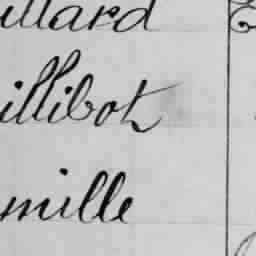 illard
illibot
mille